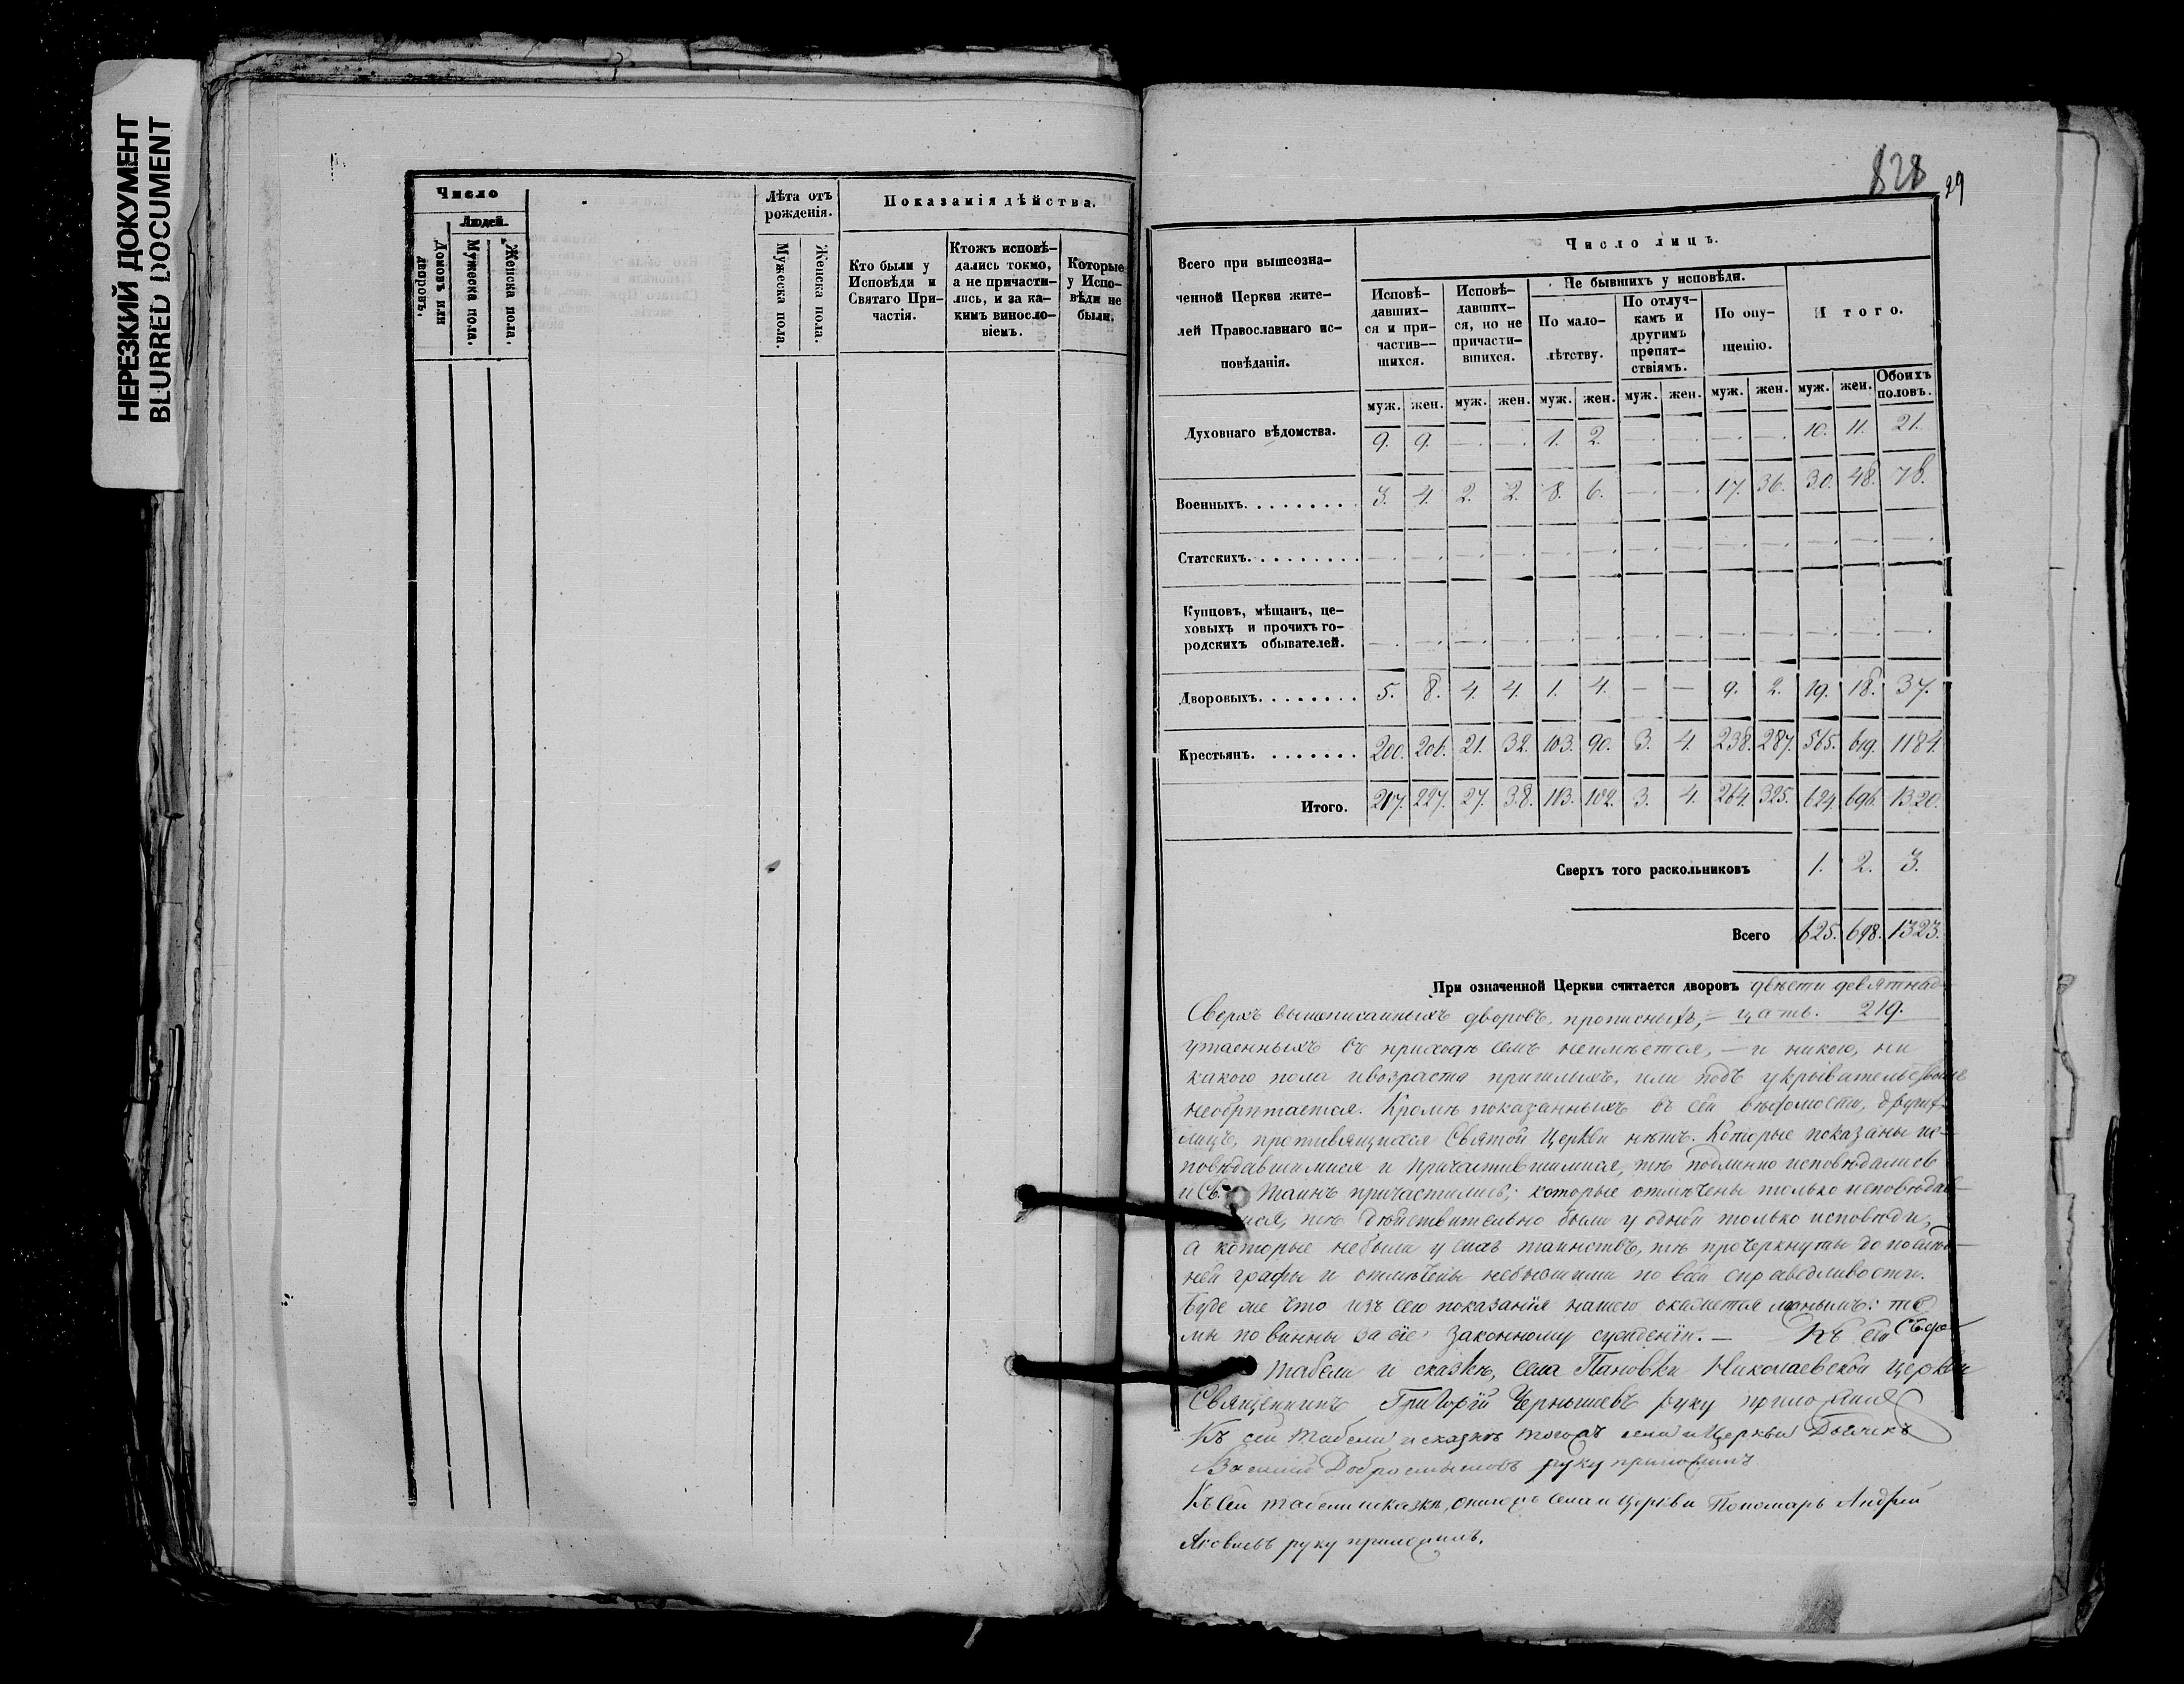 НЕРЕЗКИЙ ДОКУМЕНТ
BLURRED DOCUMENT
Число
Людей.
Домовъ или дворовъ.
Мужеска пола.
Женска пола.
Лѣта отъ
рожденія.
Мужеска пола.
Женска пола.
Показанія дѣйства.
Кто были у
Исповѣди и
Святаго При-
частія.
Ктожъ исповѣ-
дались токмо,
а не причасти-
лись, и за ка-
кимъ винсло-
віемъ.
Которые
у Испо-
вѣди не
были.
828
29
Всего при вышеозна-
ченной Церкви жите-
лей Православнаго ис-
повѣданія.
Число лицъ.
Исповѣ-
давших-
ся и при-
частив-
шихся.
Исповѣ-
давших-
ся, но не
причасти-
вшихся.
Не бывшихъ у исповѣди.
По мало-
лѣтству.
По отлуч-
камъ и
другимъ
препят-
ствіямъ.
По опу-
щенію.
Итого.
муж. жен. муж. жен. муж. жен. муж. жен. муж. жен. муж. жен. Обоихъ половъ.
Духовнаго вѣдомства. 9. 9. — — 1. 2. — — — — 10. 11. 21.
Военныхъ. 3. 4. 2. 2. 8. 6. — — 17. 36. 30. 48. 78.
Статскихъ. — — — — — — — — — — — — —
Купцовъ, мѣщанъ, це-
ховыхъ и прочихъ го-
родскихъ обывателей. — — — — — — — — — — — — —
Дворовыхъ. 5. 8. 4. 4. 1. 4. — — 9. 2. 19. 18. 37.
Крестьянъ. 200. 206. 21. 32. 103. 90. 3. 4. 238. 287. 565. 619. 1184.
Итого. 217. 227. 27. 38. 113. 102. 3. 4. 264. 325. 624. 696. 1320.
Сверхъ того раскольниковъ 1. 2. 3.
Всего 625. 698. 1323.
При означенной Церкви считается дворовъ двѣсти девятнад-
цать. 219.
Сверхъ вышеписанныхъ дворовъ, прописныхъ, —
утаенныхъ въ приходѣ семъ неимѣется, — и никого, ни
какого пола и возраста пришлыхъ, или подъ укрывательствомъ
необрѣтается. Кромѣ показанныхъ въ сей вѣдомости, другихъ
лицъ, противящихся Святой Церкви нѣтъ. Которые показаны ис-
повѣдавшимися и причастившимися, тѣ подлинно исповѣдались
и Св. Таинъ причастились; которые отмѣчены только исповѣдав-
шимися, тѣ дѣйствительно были у одной только исповѣди,
а которые небыли у сихъ таинствъ, тѣ прочеркнуты до послѣд-
ней графы и отмѣчены небывшими по всей справедливости.
Буде же что изъ сего показанія нашего окажется ложнымъ: то
мы повинны за сіе законному сужденію. — Къ сей
табели и сказкѣ, села Пановки Николаевской церкви
Священникъ Григорій Чернышевъ руку приложилъ
Къ сей табели и сказкѣ тогожъ села и Церкви Дьячекъ
Василій Добросмысловъ руку приложилъ
Къ сей табели и сказкѣ, онагожъ села и церкви Пономарь Андрей
Яковлевъ руку приложилъ.